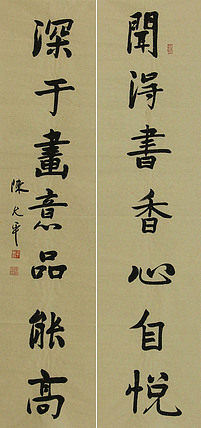 聞得書香心自悅
深于畫意品能高
陳大軍